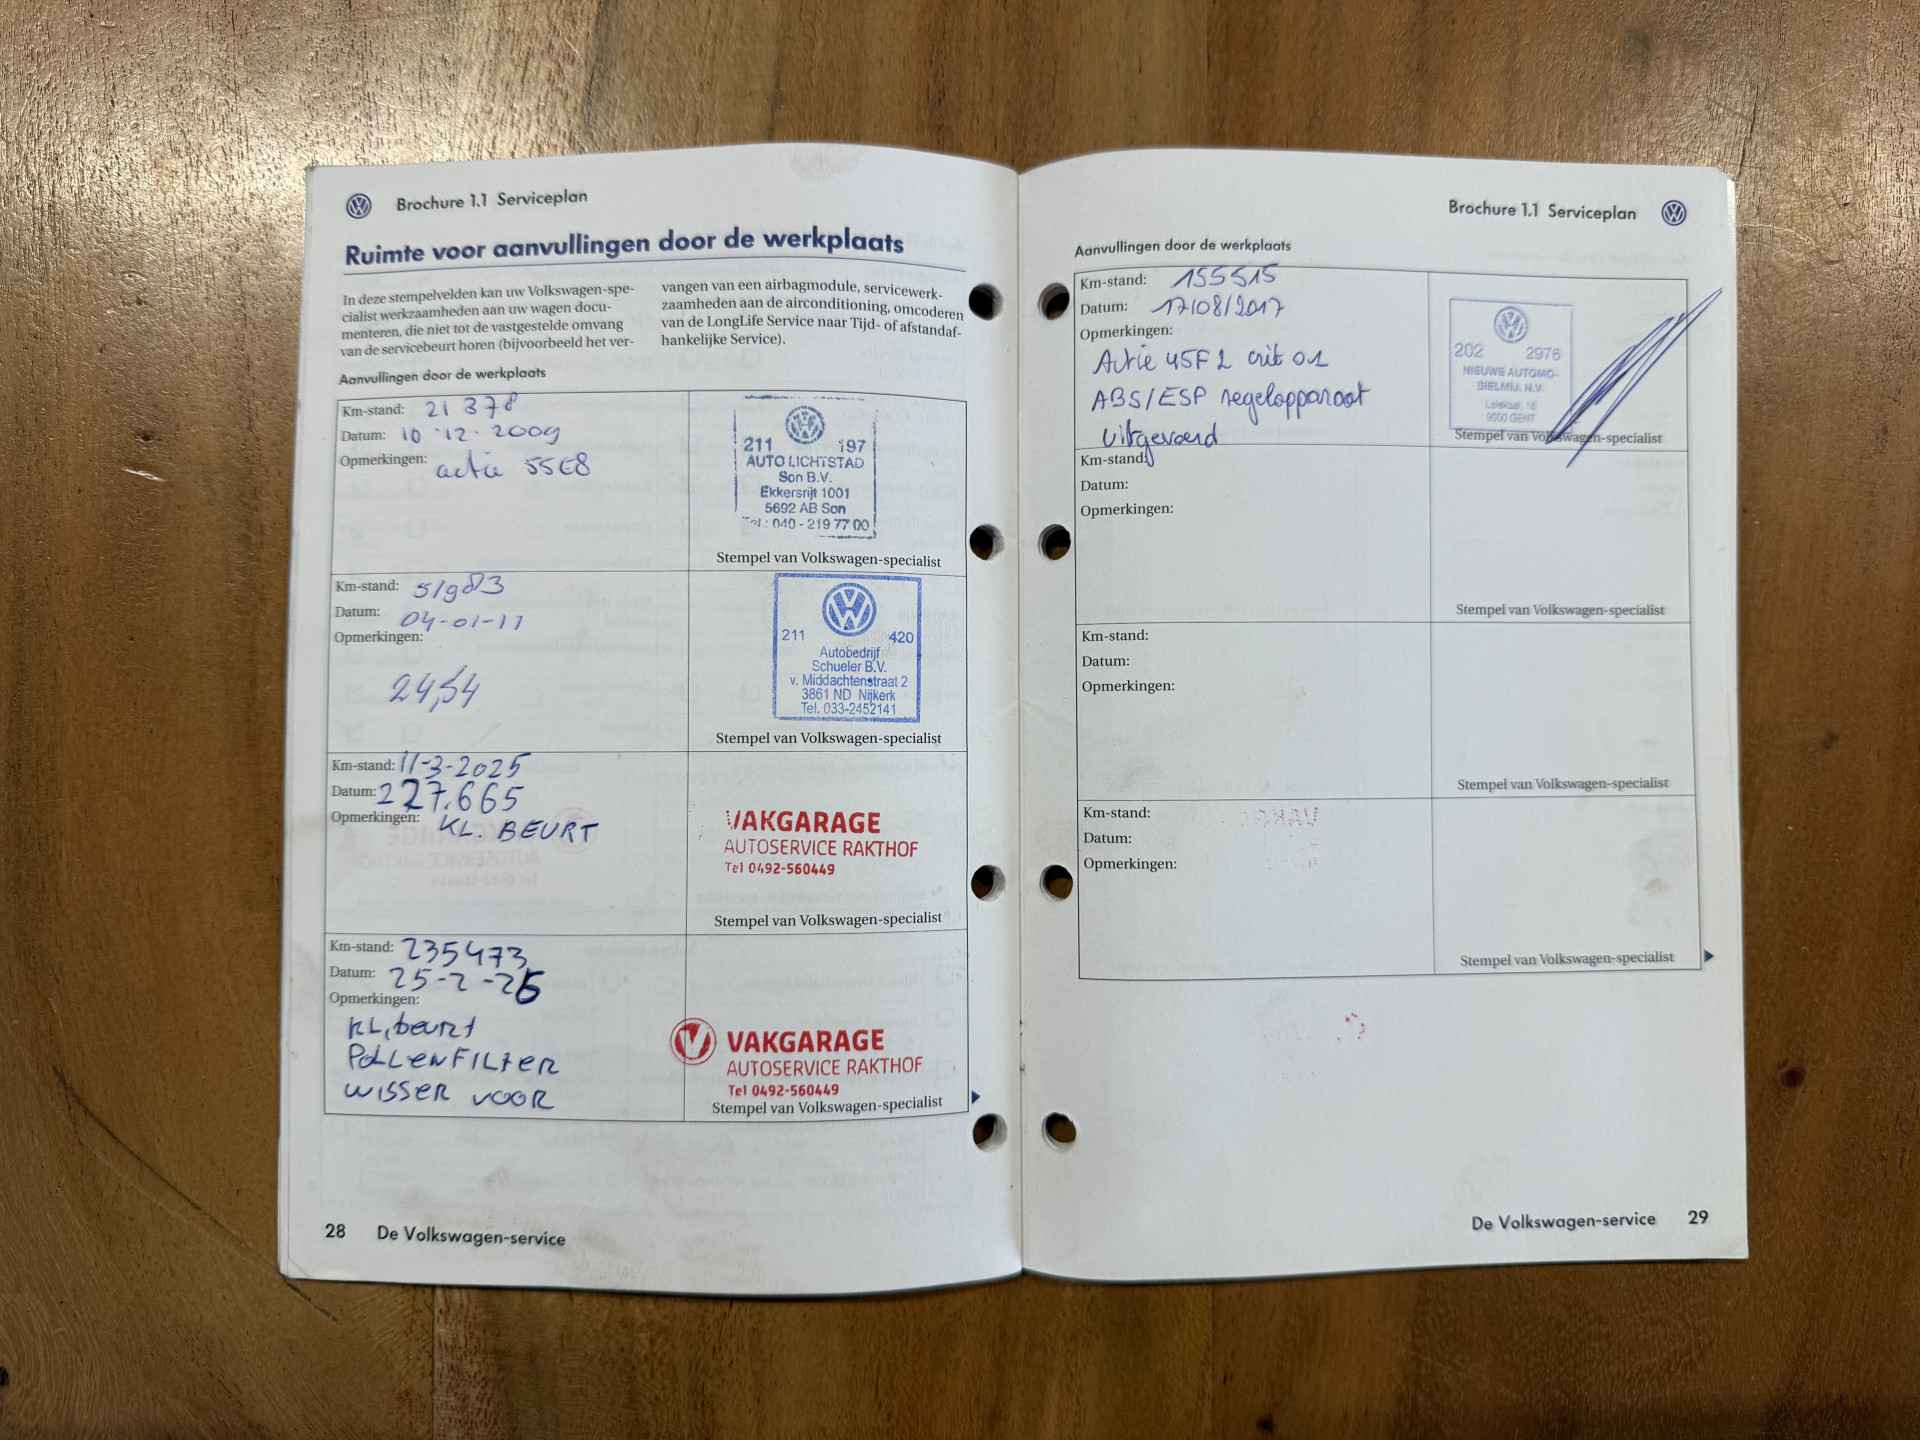 Brochure 1.1 Serviceplan
Ruimte voor aanvullingen door de werkplaats
In deze stempelvelden kan uw Volkswagen-spe-
cialist werkzaamheden aan uw wagen docu-
menteren, die niet tot de vastgestelde omvang
van de servicebeurt horen (bijvoorbeeld het ver-
vangen van een airbagmodule, servicewerk-
zaamheden aan de airconditioning, omcoderen
van de LongLife Service naar Tijd- of afstandaf-
hankelijke Service).
Aanvullingen door de werkplaats
Km-stand: 21 378
Datum: 10-12-2009
Opmerkingen: actie 55E8
211 197
AUTO LICHTSTAD
Son B.V.
Ekkersrijt 1001
5692 AB Son
Tel.: 040 - 219 77 00
Stempel van Volkswagen-specialist
Km-stand: 51983
Datum: 04-01-11
Opmerkingen:
24,54
211 420
Autobedrijf
Schueler B.V.
v. Middachtenstraat 2
3861 ND Nijkerk
Tel. 033-2452141
Stempel van Volkswagen-specialist
Km-stand: 11-3-2025
Datum: 227.665
Opmerkingen: KL. BEURT
VAKGARAGE
AUTOSERVICE RAKTHOF
Tel 0492-560449
Stempel van Volkswagen-specialist
Km-stand: 235473
Datum: 25-2-26
Opmerkingen:
KL, beurt
POLLENFILTER
WISSER VOOR
VAKGARAGE
AUTOSERVICE RAKTHOF
Tel 0492-560449
Stempel van Volkswagen-specialist
28 De Volkswagen-service
Brochure 1.1 Serviceplan
Aanvullingen door de werkplaats
Km-stand: 155515
Datum: 17/08/2017
Opmerkingen:
Actie 45F2 crit 01
ABS/ESP regelapparaat
uitgevoerd
202 2976
NIEUWE AUTOMO-
BIELMIJ. N.V.
9000 GENT
Stempel van Volkswagen-specialist
Km-stand:
Datum:
Opmerkingen:
Stempel van Volkswagen-specialist
Km-stand:
Datum:
Opmerkingen:
Stempel van Volkswagen-specialist
Km-stand:
Datum:
Opmerkingen:
Stempel van Volkswagen-specialist
De Volkswagen-service 29